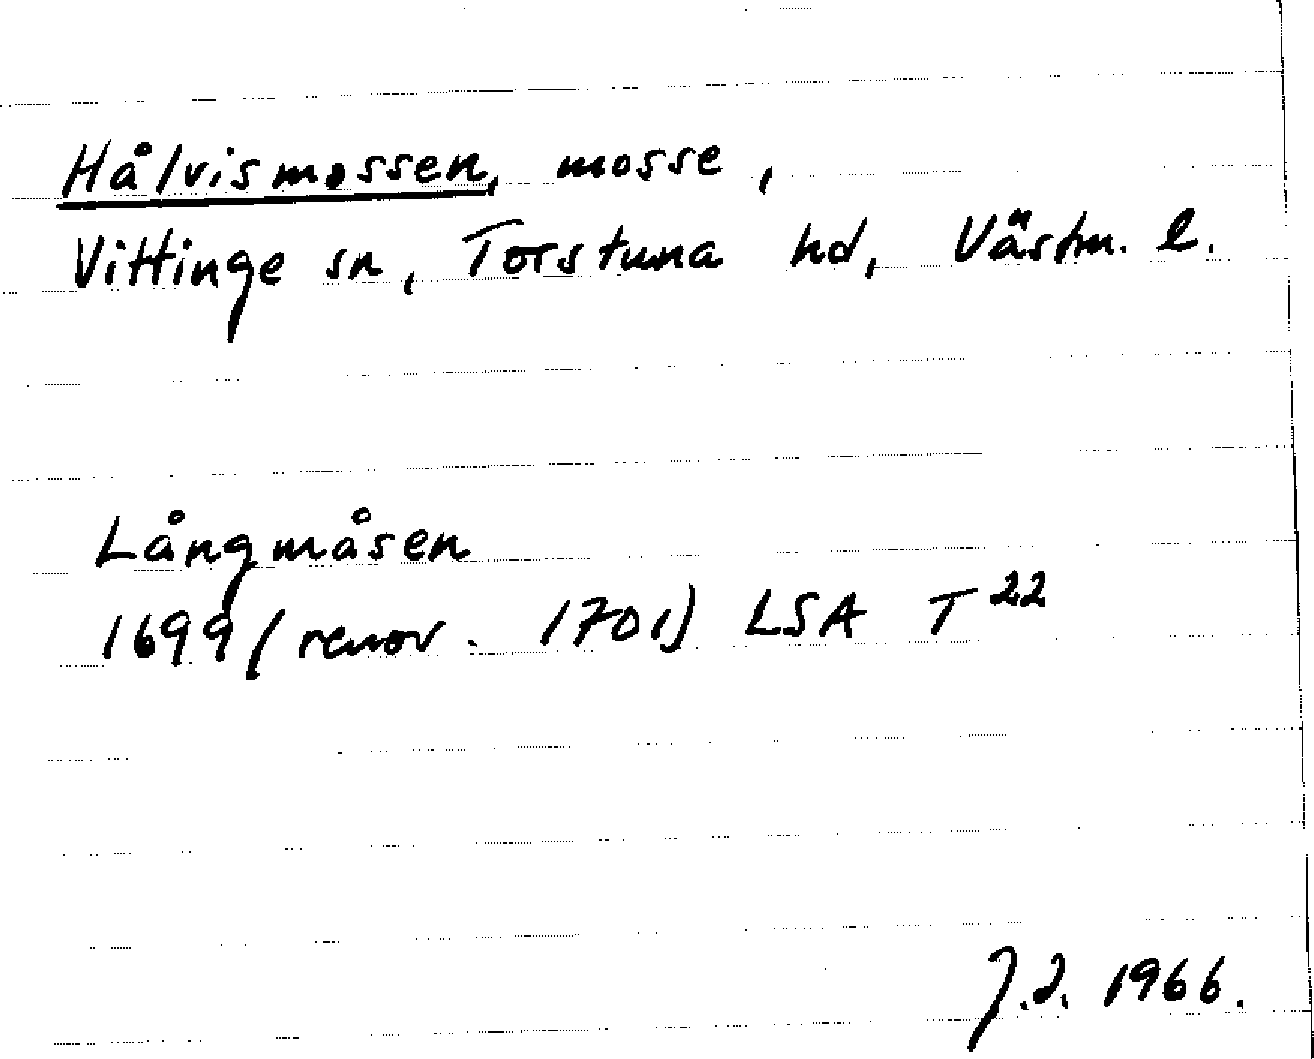 Hålvismossen, mosse,
Vittinge sn, Torstuna hd, Västm. l.
Långmåsen
1699 (renov. 1701) LSA T 22
J.J. 1966.